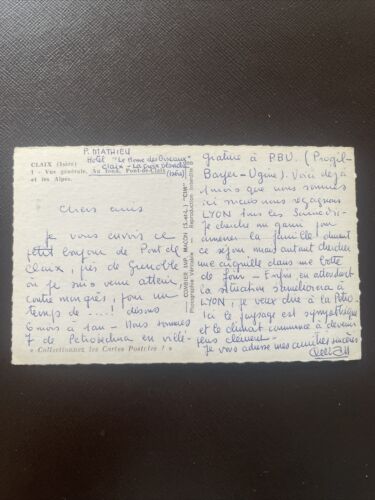 P. MATHIEU
Hotel "Le Home des Oiseaux"
Claix - La Croix blanche
(Isère)
CLAIX (Isère)
1 - Vue générale. Au fond, Pont-de-Claix
et les Alpes.
Chers amis
Je vous envoie ce
petit bonjour de Pont de
Claix, près de Grenoble
où je suis venu atterir,
contre mon gré, pour un
temps de ....! disons
6 mois à 1 an - Nous sommes
7 de Petrosechna en villé-
« Collectionnez les Cartes Postales ! »
COMBIER IMP. MACON (S.-&-L.) "CIM"
Photographie Véritable - Reproduction interdite
giature à PBU. (Progil-
Bayer-Ugine). Voici déjà
1 mois que nous sommes
ici mais nous regagnons
LYON tous les
Je cherche un garni pour
amener la famille durant
ce séjour mais autant chercher
une aiguille dans une botte
de foin - Enfin en attendant
la situation s'améliorera à
LYON, je veux dire à la Petro.
Ici le paysage est sympathique
et le climat commence à devenir
plus clément.
Je vous adresse mes amitiés sincères